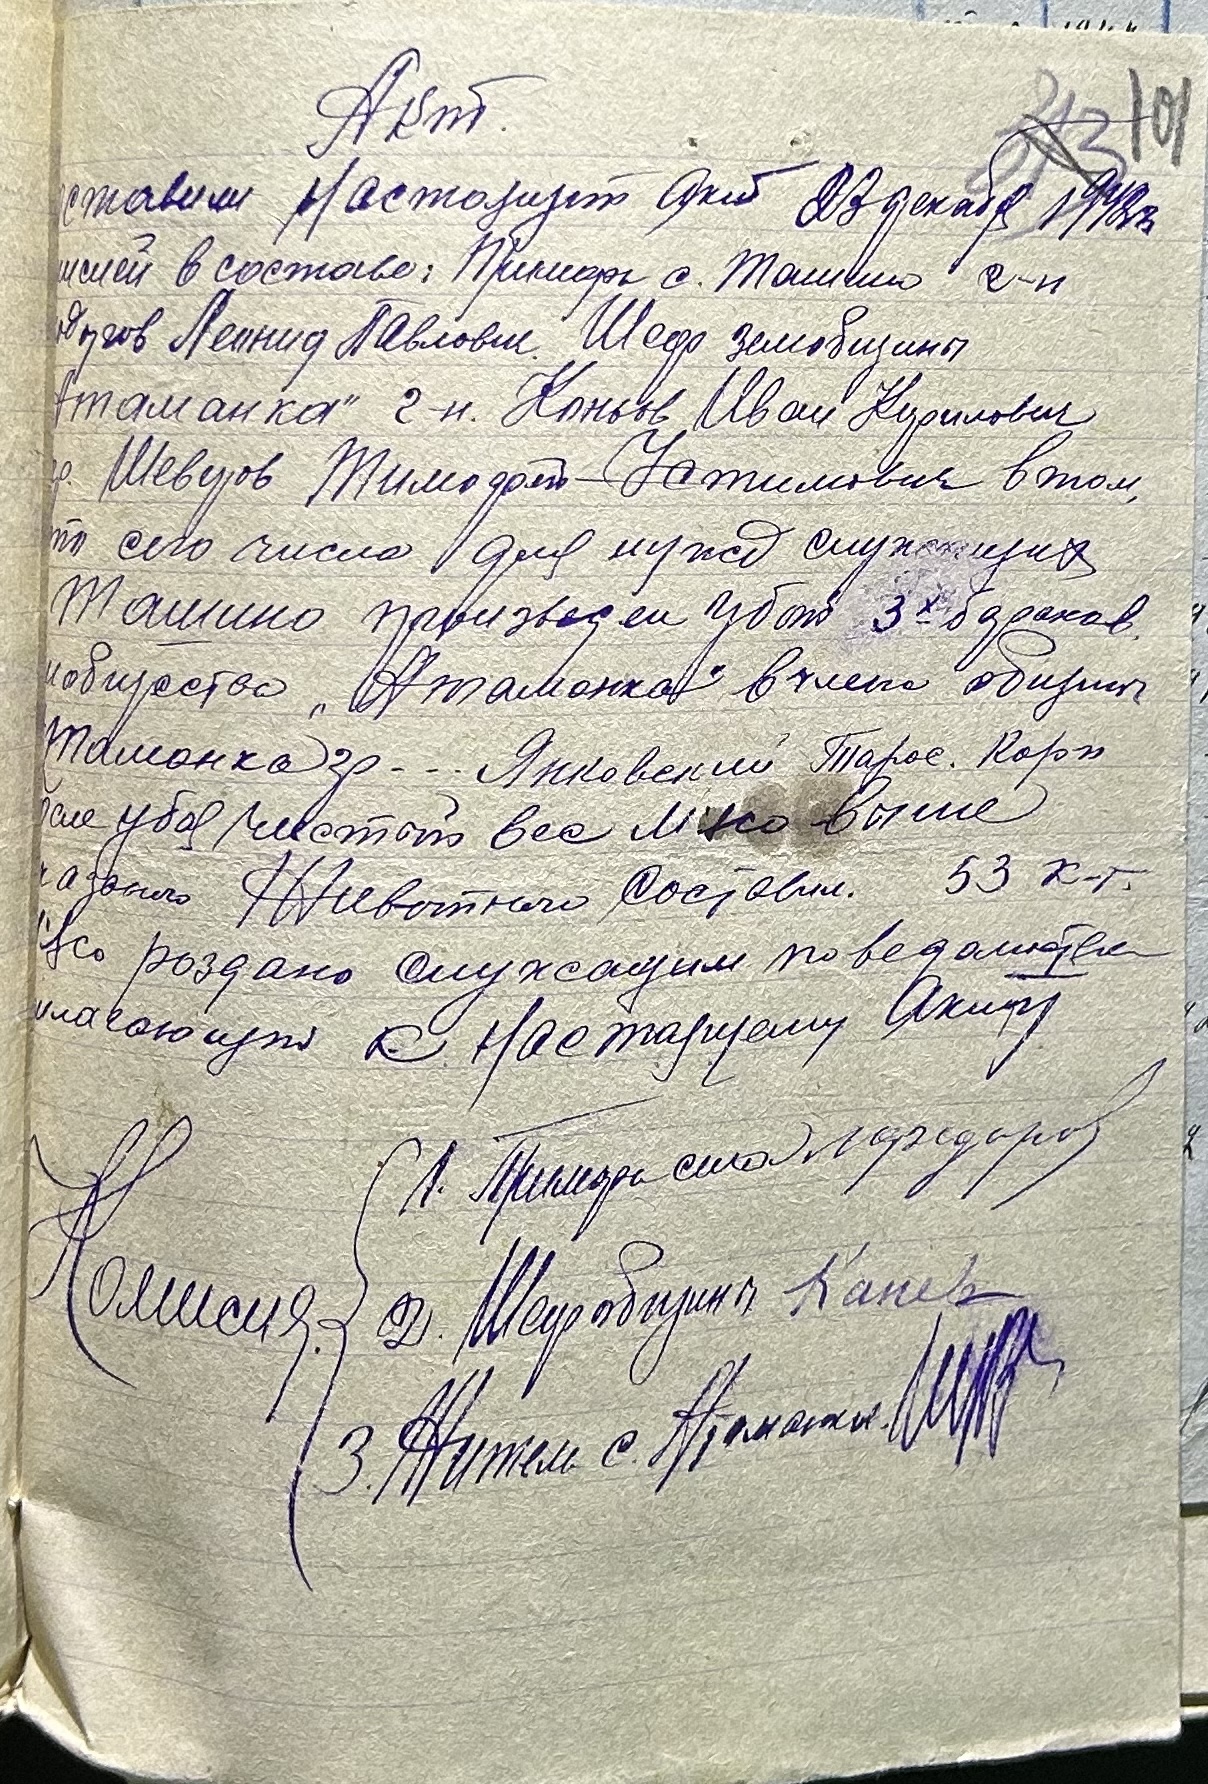 101
Акт.
ставили настоящий акт 23 декабря 1942 г.
миссией в составе: Примарь с. Ташино г-н
Леонид Павлович. Шеф земобщины
Атаманка" г-н. Коньов Иван Курилович
гр. Шевцов Тимофей Устимович в том,
что сего числа для нужд служащих
Ташино произведен убой 3х бараков
мобщества „Атаманка" в члена общины
Атаманка гр --- Янковский Тарас. Карп
осле убоя чистый вес мясо выше
казаного животного составил. 53 к-г.
мясо роздано служащим по ведомостем
илагающия к настоящему акту
Комисия.
1. Примарь села
2. Шеф общины Канев
3. Житель с. Атаманки.